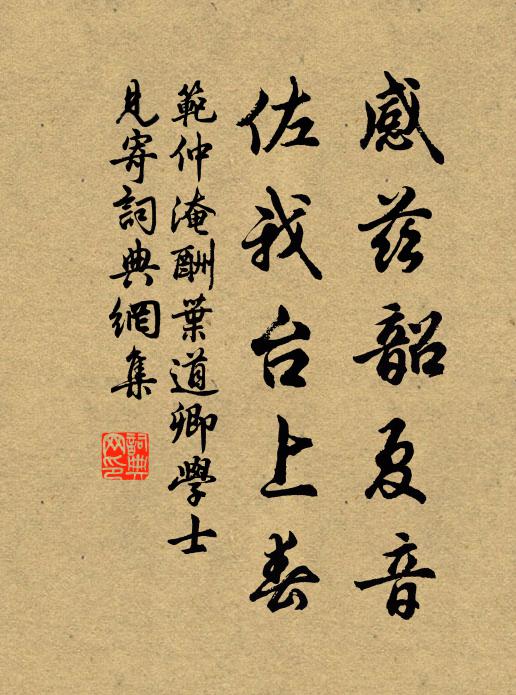 感兹韶夏音
佐我台上春
範仲淹酬葉道卿學士
見寄詞典網集
詞典
网印